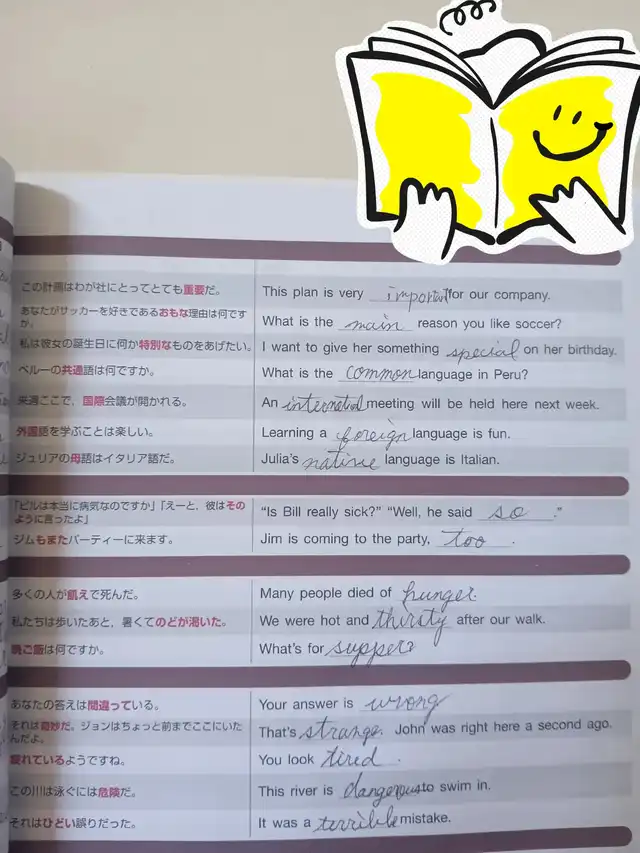 この計画はわが社にとってとても重要だ。 This plan is very important for our company.
あなたがサッカーを好きであるおもな理由は何ですか。 What is the main reason you like soccer?
私は彼女の誕生日に何か特別なものをあげたい。 I want to give her something special on her birthday.
ペルーの共通語は何ですか。 What is the common language in Peru?
来週ここで、国際会議が開かれる。 An international meeting will be held here next week.
外国語を学ぶことは楽しい。 Learning a foreign language is fun.
ジュリアの母語はイタリア語だ。 Julia's native language is Italian.
「ビルは本当に病気なのですか」「えーと、彼はそのように言ったよ」 "Is Bill really sick?" "Well, he said so."
ジムもまたパーティーに来ます。 Jim is coming to the party, too.
多くの人が飢えで死んだ。 Many people died of hunger.
私たちは歩いたあと、暑くてのどが渇いた。 We were hot and thirsty after our walk.
晩ご飯は何ですか。 What's for supper?
あなたの答えは間違っている。 Your answer is wrong
それは奇妙だ。ジョンはちょっと前までここにいたんだよ。 That's strange. John was right here a second ago.
疲れているようですね。 You look tired.
この川は泳ぐには危険だ。 This river is dangerous to swim in.
それはひどい誤りだった。 It was a terrible mistake.